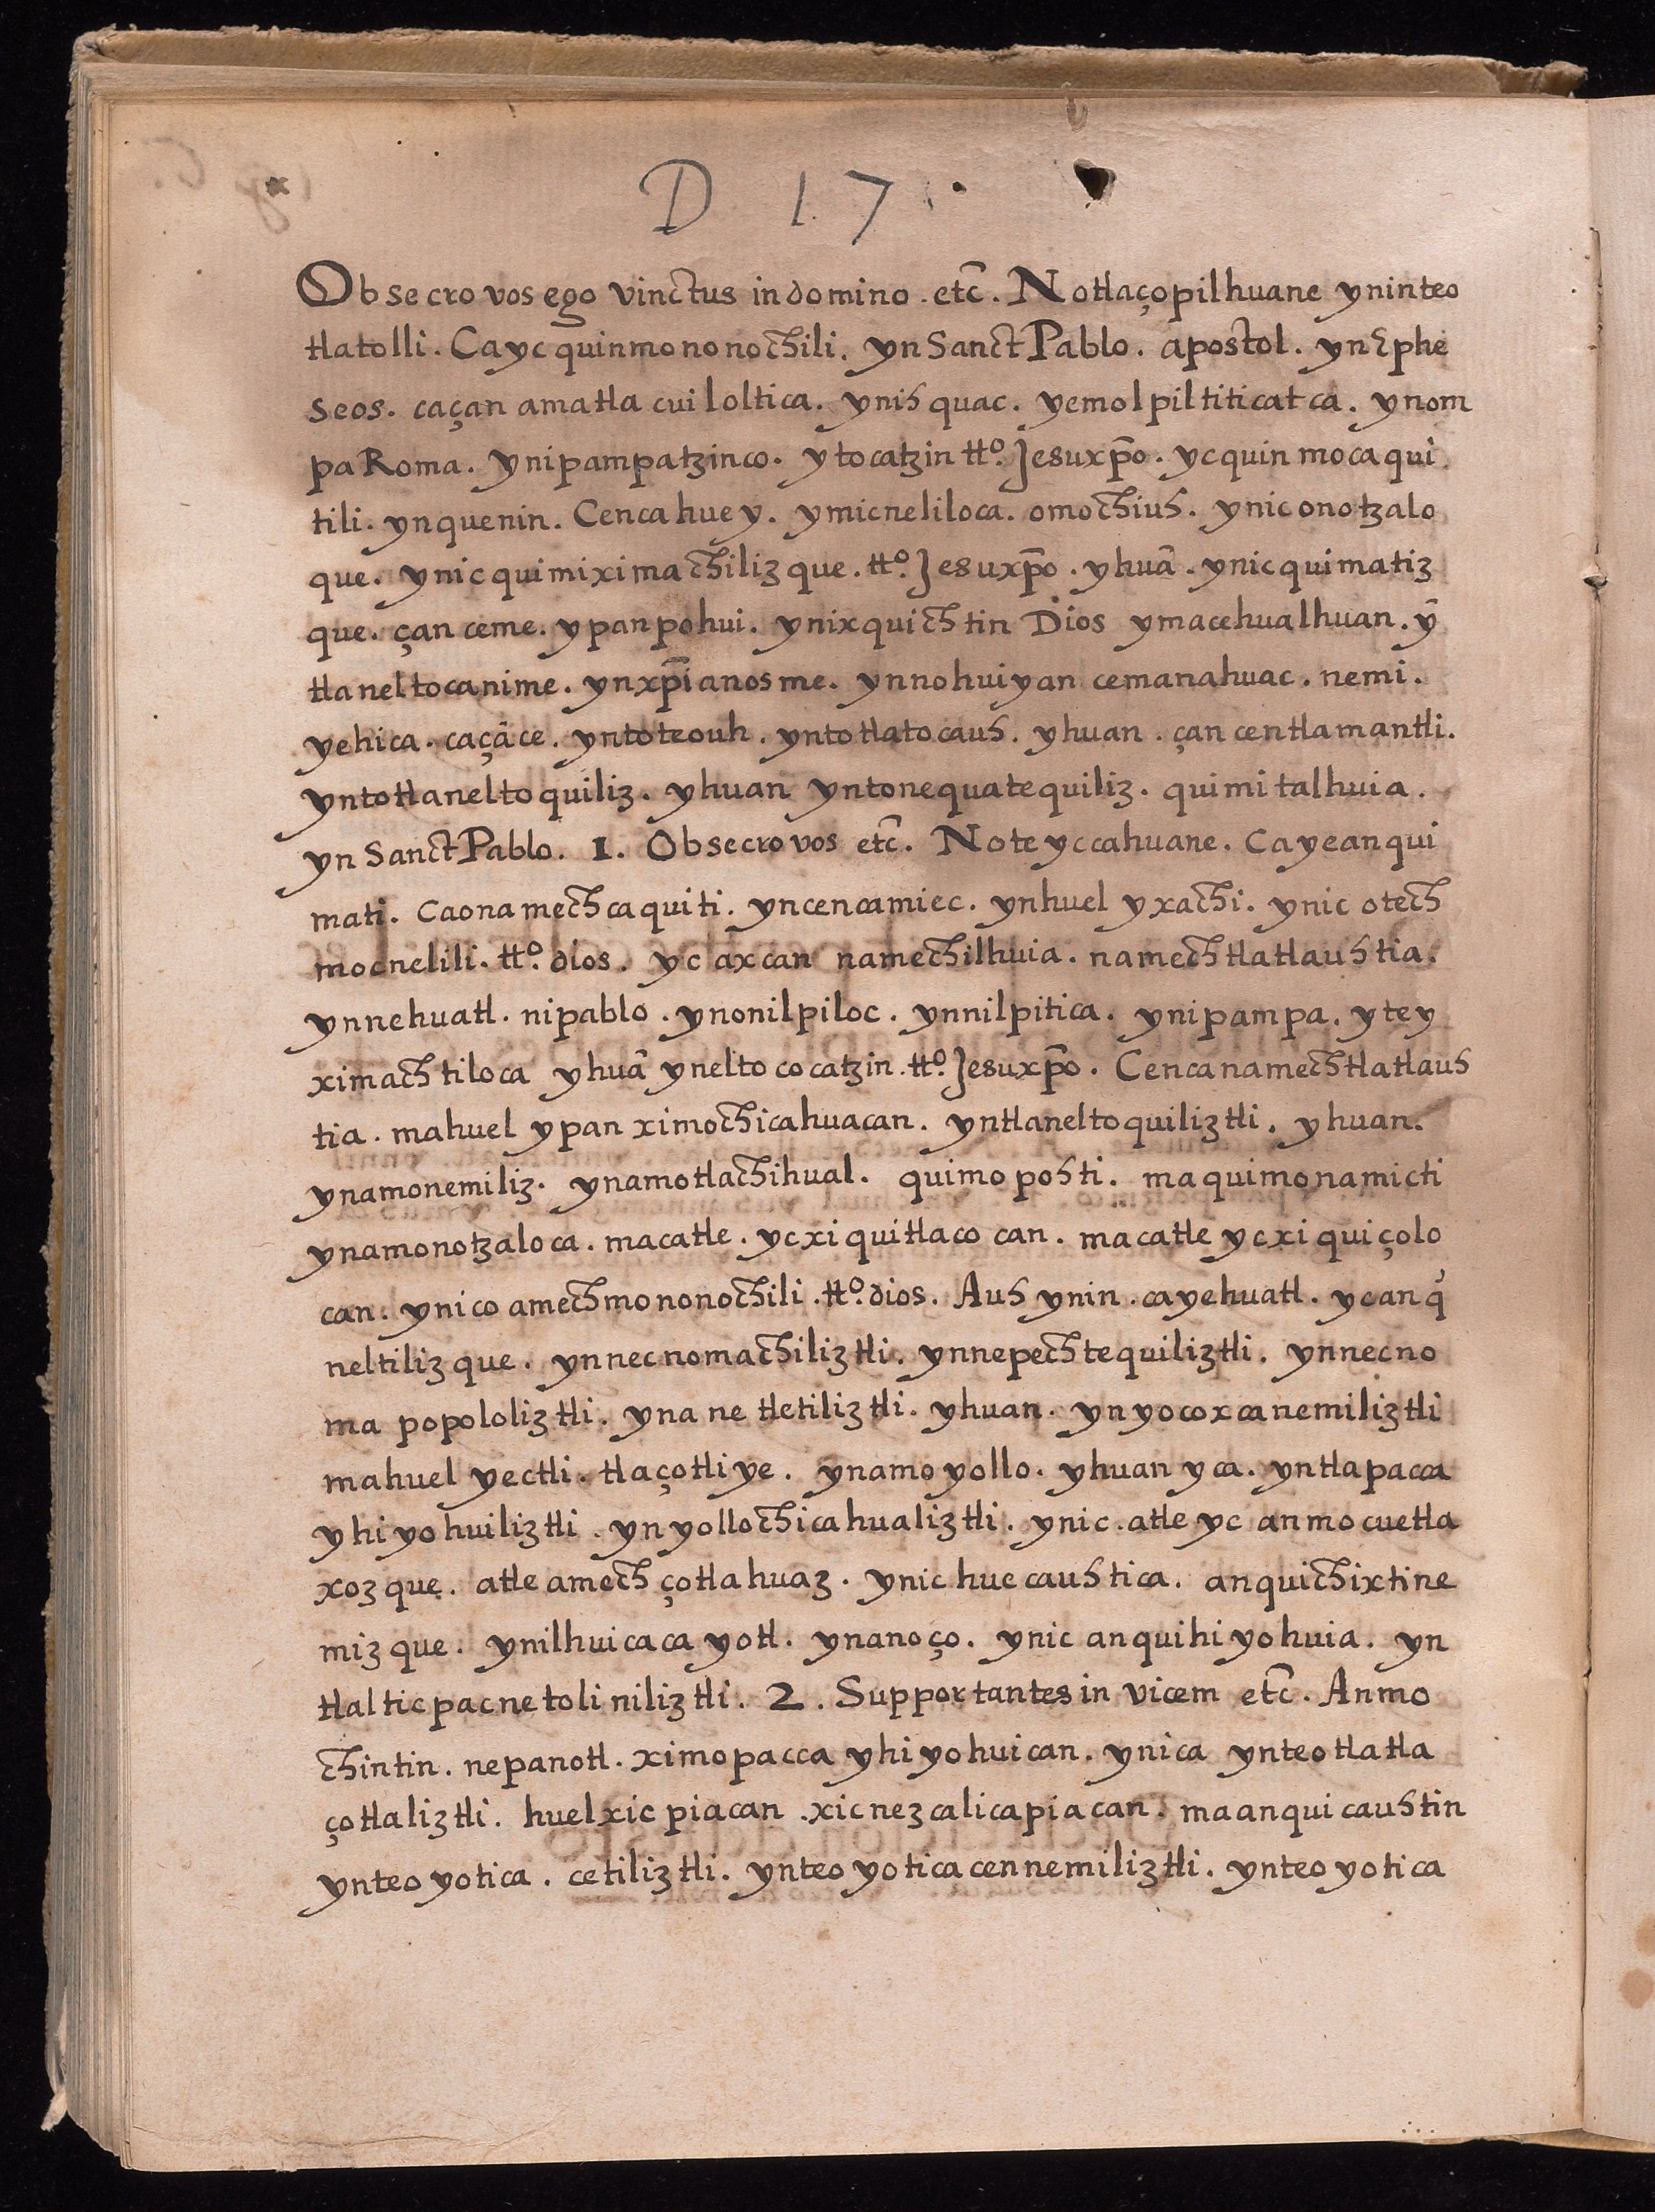 D 17.
Obsecro vos ego vinctus in domino. etc̄. Notlaçopilhuane yninteo
tlatolli. Ca yc quinmononochili. yn Sanct Pablo. apostol. yn Ephe
seos. caçan amatlacuiloltica. ynihquac. yemolpiltiticatca. ynom
pa Roma. ynipampatzinco. ytocatzin tt.º Jesuxp̄o. yc quinmocaqui
tili. ynquenin. Cencahuey. ymicneliloca. omochiuh. ynic onotzalo
que. ynic quimiximachilizque. tt.º Jesuxp̄o. yhuā. ynic quimatiz
que. çan ceme. ypanpohui. ynixquichtin Dios ymacehualhuan. ȳ
tlaneltocanime. ynxp̄ianosme. ynnohuiyan cemanahuac. nemi.
yehica. caçāce. yntoteouh. yntotlatocauh. yhuan. çan centlamantli.
yntotlaneltoquiliz. yhuan yntonequatequiliz. quimitalhuia.
yn Sanct Pablo. 1. Obsecro vos etc̄. Noteyccahuane. Cayeanqui
mati. Caonamechcaquiti. yncencamiec. ynhuel yxachi. ynic otech
mocnelili. tt.º dios. yc axcan namechilhuia. namechtlatlauhtia.
ynnehuatl. nipablo. ynonilpiloc. ynnilpitica. ynipampa. ytey
ximachtiloca yhuā yneltococatzin. tt.º Jesuxp̄o. Cencanamechtlatlauh
tia. mahuel ypan ximochicahuacan. yntlaneltoquiliztli. yhuan.
ynamonemiliz. ynamotlachihual. quimopohti. maquimonamicti
ynamonotzaloca. macatle. ycxiquitlacocan. macatle ycxiquiçolo
can. ynicoamechmononochili. tt.º dios. Auh ynin. cayehuatl. ycanq̓
neltilizque. ynnecnomachiliztli. ynnepechtequiliztli. ynnecno
mapopololiztli. ynanetletiliztli. yhuan. ynyocoxcanemiliztli
mahuel yectli. tlaçotliye. ynamoyollo. yhuan yca. yntlapacca
yhiyohuiliztli. ynyollochicahualiztli. ynic. atle yc anmocuetla
xozque. atle amechçotlahuaz. ynic huecauhtica. anquichixtine
mizque. ynilhuicacayotl. ynanoço. ynic anquihiyohuia. yn
tlalticpacnetoliniliztli. 2. Supportantes in vicem etc̄. Anmo
chintin. nepanotl. ximopaccayhiyohuican. ynica ynteotlatla
çotlaliztli. huelxicpiacan. xicnezcalicapiacan. maanquicauhtin
ynteoyotica. cetiliztli. ynteoyoticacennemiliztli. ynteoyotica